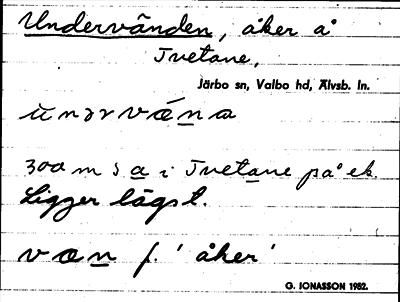 Undervänden, åker å
Tvetane,
Järbo sn, Valbo hd, Älvsb. ln.
ùnərvǽna
300 m s a i Tvetane på ek.
Ligger lägst.
væn f. 'åker'
G. JONASSON 1982.